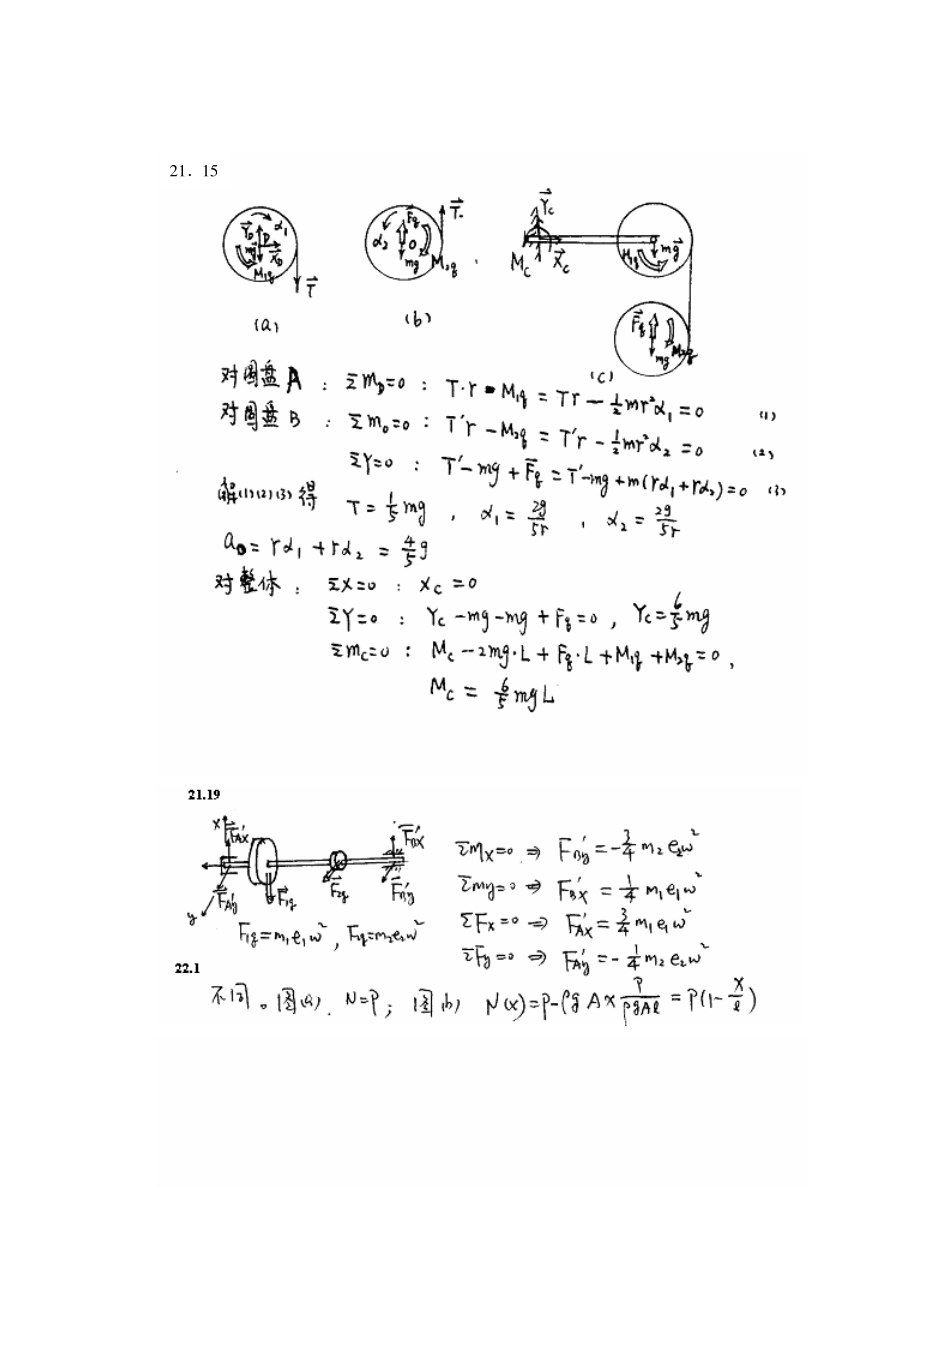 21．15
α₁ Y_D D mg X_D M₁q T
α₂ F_q O mg M₂q T'
Y_C M_C X_C M₁q mg
F_q mg M₂q
(a) (b) (c)
对圆盘A : Σm_D=0 : T·r - M₁q = Tr - ½mr²α₁ = 0 (1)
对圆盘B : Σm₀=0 : T'r - M₂q = T'r - ½mr²α₂ = 0 (2)
ΣY=0 : T' - mg + F_q = T' - mg + m(rα₁ + rα₂) = 0 (3)
解(1)(2)(3)得 T = 1/5 mg , α₁ = 2g/5r , α₂ = 2g/5r
a₀ = rα₁ + rα₂ = 4/5 g
对整体 : ΣX=0 : X_C = 0
ΣY=0 : Y_C - mg - mg + F_q = 0 , Y_C = 6/5 mg
Σm_C=0 : M_C - 2mg·L + F_q·L + M₁q + M₂q = 0 ,
M_C = 6/5 mgL
21.19
x F'_Ax F'_Bx
y F'_Ay F₁q F₂q F'_By
F₁q = m₁e₁ω² , F₂q = m₂e₂ω²
Σm_x=0 ⇒ F'_By = -3/4 m₂e₂ω²
Σm_y=0 ⇒ F'_Bx = 1/4 m₁e₁ω²
ΣF_x=0 ⇒ F'_Ax = 3/4 m₁e₁ω²
ΣF_y=0 ⇒ F'_Ay = -1/4 m₂e₂ω²
22.1
不同。图(a). N=P ; 图(b) N(x)=P-ρgAx P/ρgAl = P(1-x/l)